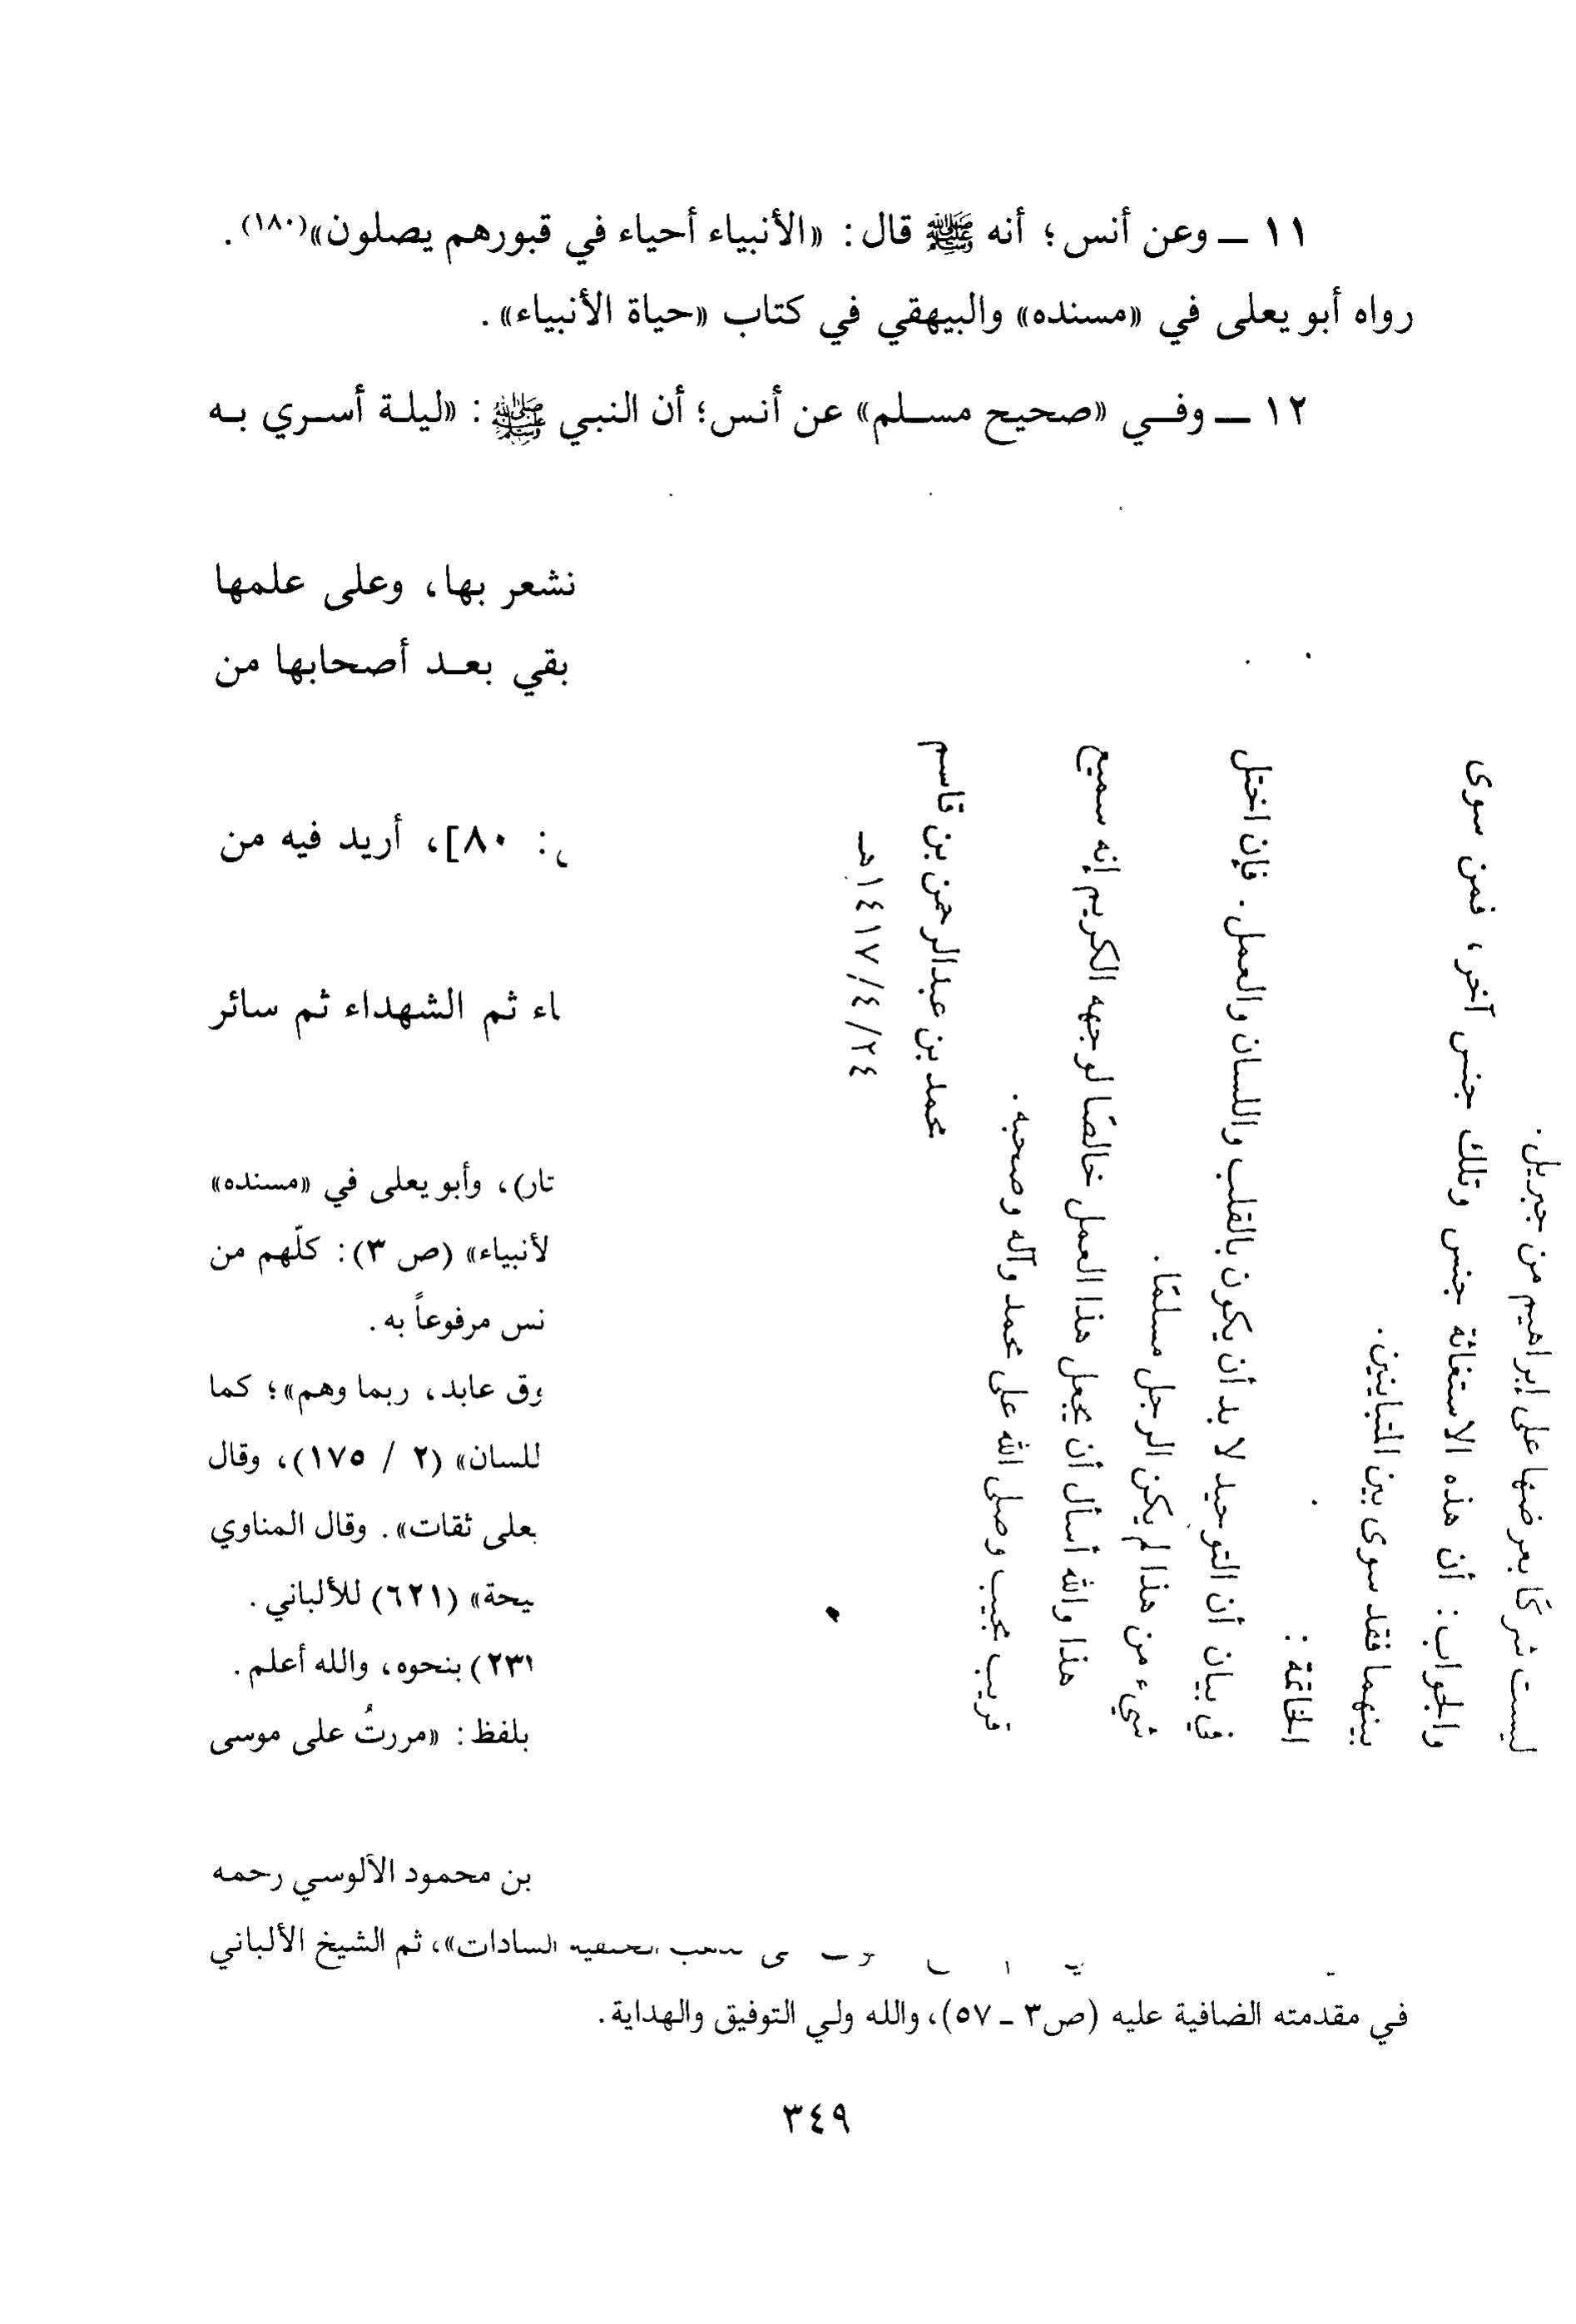 ١١ ــ وعن أنس؛ أنه ﷺ قال: «الأنبياء أحياء في قبورهم يصلون»(١٨٠).
رواه أبو يعلى في «مسنده» والبيهقي في كتاب «حياة الأنبياء».
١٢ ــ وفي «صحيح مسلم» عن أنس؛ أن النبي ﷺ: «ليلة أسري به
نشعر بها، وعلى علمها
بقي بعد أصحابها من
: ٨٠]، أريد فيه من
اء ثم الشهداء ثم سائر
تار)، وأبو يعلى في «مسنده»
لأنبياء» (ص ٣): كلّهم من
نس مرفوعاً به.
وق عابد، ربما وهم»؛ كما
للسان» (٢ / ١٧٥)، وقال
يعلى ثقات». وقال المناوي
يحة» (٦٢١) للألباني.
٢٣١) بنحوه، والله أعلم.
بلفظ: «مررتُ على موسى
بن محمود الآلوسي رحمه
السادات»، ثم الشيخ الألباني
في مقدمته الضافية عليه (ص٣ ـ ٥٧)، والله ولي التوفيق والهداية.
٣٤٩
ليست شركًا بعرضها على إبراهيم من جبريل.
والجواب: أن هذه الاستغاثة جنس وتلك جنس آخر، فمن سوى
بينهما فقد سوى بين المتباينين.
الخاتمة:
في بيان أن التوحيد لا بد أن يكون بالقلب واللسان والعمل. فإن اختل
شيء من هذا لم يكن الرجل مسلمًا.
هذا والله أسأل أن يجعل هذا العمل خالصًا لوجهه الكريم إنه سميع
قريب مجيب وصلى الله على محمد وآله وصحبه.
محمد بن عبدالرحمن بن قاسم
١٤١٧/٤/٢٤هـ